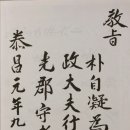 教旨
朴自凝爲
政大夫行
光郡守
泰昌元年九